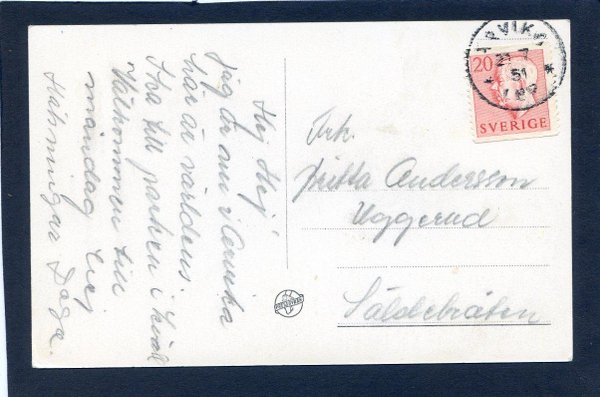 Hej Hej
jag är nu i Arvika
här är världens
Ska till parken i kväll
Välkommen till
måndag Hej
Hälsningar Dага
ARVIKA
51
20
SVERIGE
Frk.
Britta Andersson
Uggerud
Säldebråten